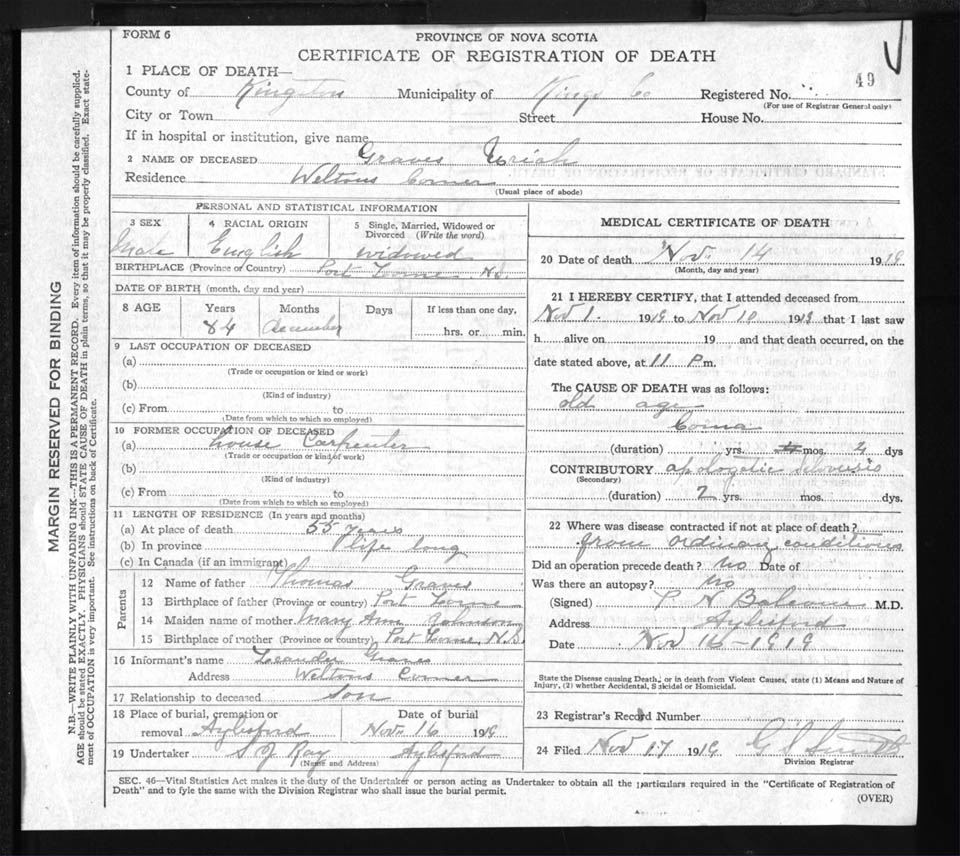 FORM 6
PROVINCE OF NOVA SCOTIA
CERTIFICATE OF REGISTRATION OF DEATH
1 PLACE OF DEATH—
County of Kingston Municipality of Kings Co Registered No. 49
(For use of Registrar General only)
City or Town Street House No.
If in hospital or institution, give name
2 NAME OF DECEASED Graves Uriah
Residence Weltons Corner
(Usual place of abode)
PERSONAL AND STATISTICAL INFORMATION
3 SEX 4 RACIAL ORIGIN 5 Single, Married, Widowed or Divorced (Write the word)
Male English widowed
BIRTHPLACE (Province or Country) Port Lorne N.S
DATE OF BIRTH (month, day and year)
8 AGE Years Months Days If less than one day,
84 December hrs. or min.
9 LAST OCCUPATION OF DECEASED
(a)
(Trade or occupation or kind or work)
(b)
(Kind of industry)
(c) From to
(Date from which to which so employed)
10 FORMER OCCUPATION OF DECEASED
(a) House Carpenter
(Trade or occupation or kind of work)
(b)
(Kind of industry)
(c) From to
(Date from which to which so employed)
11 LENGTH OF RESIDENCE (In years and months)
(a) At place of death 55 years
(b) In province life long
(c) In Canada (if an immigrant)
Parents
12 Name of father Thomas Graves
13 Birthplace of father (Province or country) Port Lorne
14 Maiden name of mother Mary Ann Johnson
15 Birthplace of mother (Province or country) Port Lorne, N.S.
16 Informant's name Leander Graves
Address Weltons Corner
17 Relationship to deceased Son
18 Place of burial, cremation or Date of burial
removal Aylesford Nov. 16 1919
19 Undertaker S J Ray Aylesford
(Name and Address)
MEDICAL CERTIFICATE OF DEATH
20 Date of death Nov. 14 1919
(Month, day and year)
21 I HEREBY CERTIFY, that I attended deceased from
Nov 1. 1919 to Nov 10 1919 that I last saw
h alive on 19 and that death occurred, on the
date stated above, at 11 P m.
The CAUSE OF DEATH was as follows:
old age
Coma
(duration) yrs. mos. 2 dys
CONTRIBUTORY
(Secondary)
(duration) 2 yrs. mos. dys.
22 Where was disease contracted if not at place of death?
from ordinary conditions
Did an operation precede death? no Date of
Was there an autopsy? no
(Signed) P N Balcom M.D.
Address Aylesford
Date Nov 16-1919
State the Disease causing Death, or in death from Violent Causes, state (1) Means and Nature of
Injury, (2) whether Accidental, Suicidal or Homicidal.
23 Registrar's Record Number
24 Filed Nov 17 1919 G S Smith
Division Registrar
SEC. 46—Vital Statistics Act makes it the duty of the Undertaker or person acting as Undertaker to obtain all the particulars required in the "Certificate of Registration of
Death" and to fyle the same with the Division Registrar who shall issue the burial permit.
(OVER)
MARGIN RESERVED FOR BINDING
N.B.—WRITE PLAINLY WITH UNFADING INK—THIS IS A PERMANENT RECORD. Every item of information should be carefully supplied.
AGE should be stated EXACTLY. PHYSICIANS should STATE CAUSE OF DEATH in plain terms, so that it may be properly classified. Exact state-
ment of OCCUPATION is very important. See instructions on back of Certificate.